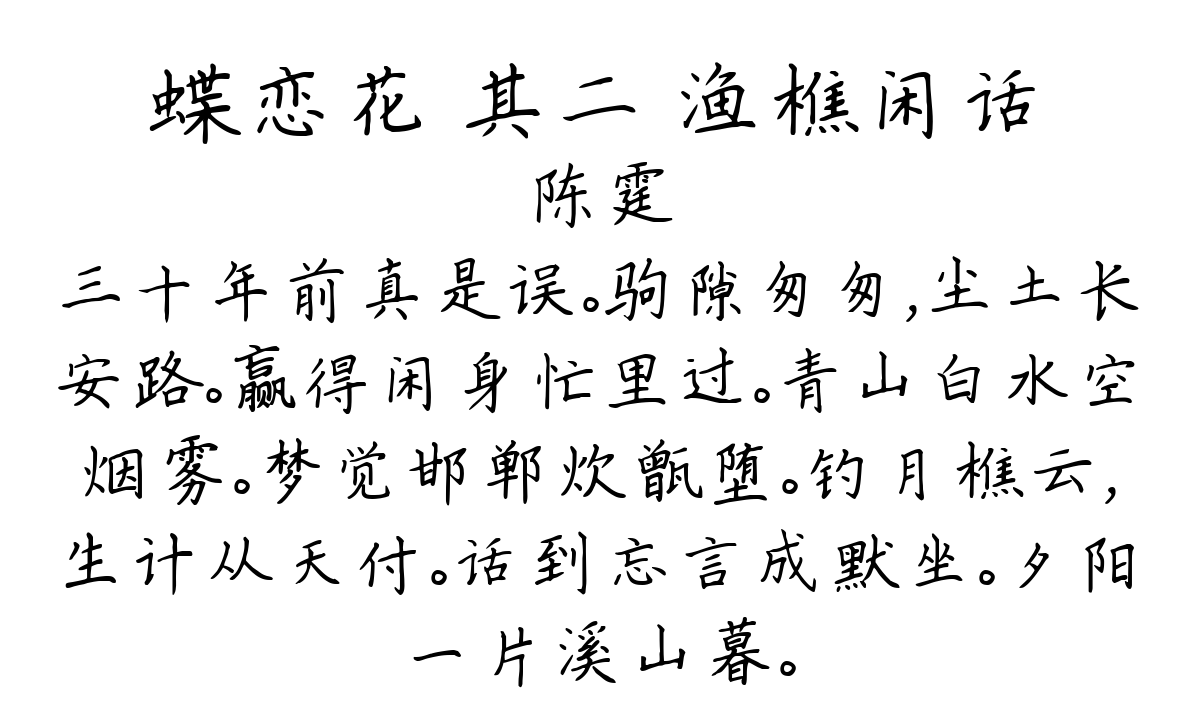 蝶恋花 其二 渔樵闲话
陈霆
三十年前真是误。驹隙匆匆,尘土长
安路。赢得闲身忙里过。青山白水空
烟雾。梦觉邯郸炊甑堕。钓月樵云,
生计从天付。话到忘言成默坐。夕阳
一片溪山暮。